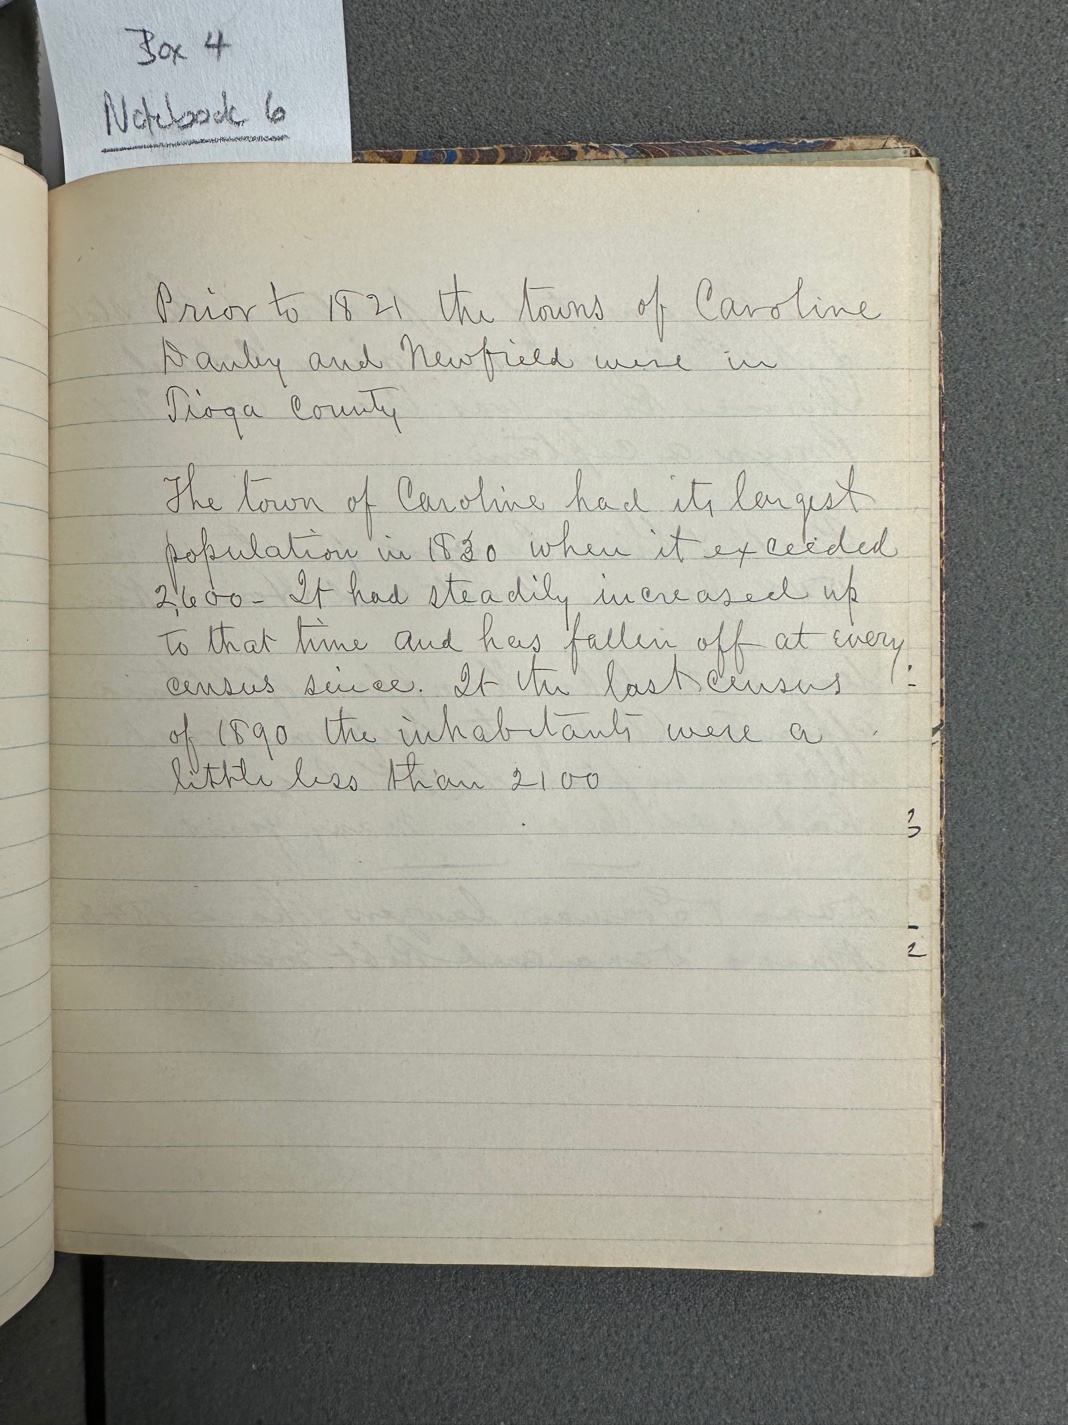 Box 4
Notebook 6
Prior to 1821 the towns of Caroline
Danby and Newfield were in
Tioga County
The town of Caroline had its largest
population in 1830 when it exceeded
2,600 - It had steadily increased up
to that time and has fallen off at every
census since. It the last census
of 1890 the inhabitants were a
little less than 2100
3
2